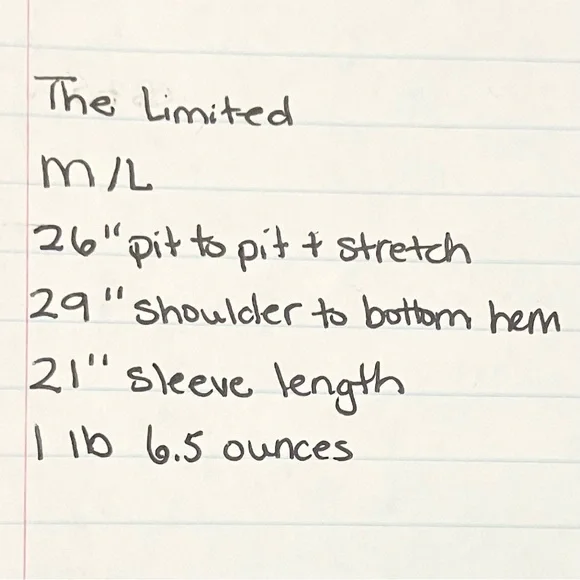 The Limited
M/L
26" pit to pit + stretch
29" shoulder to bottom hem
21" sleeve length
1 lb 6.5 ounces